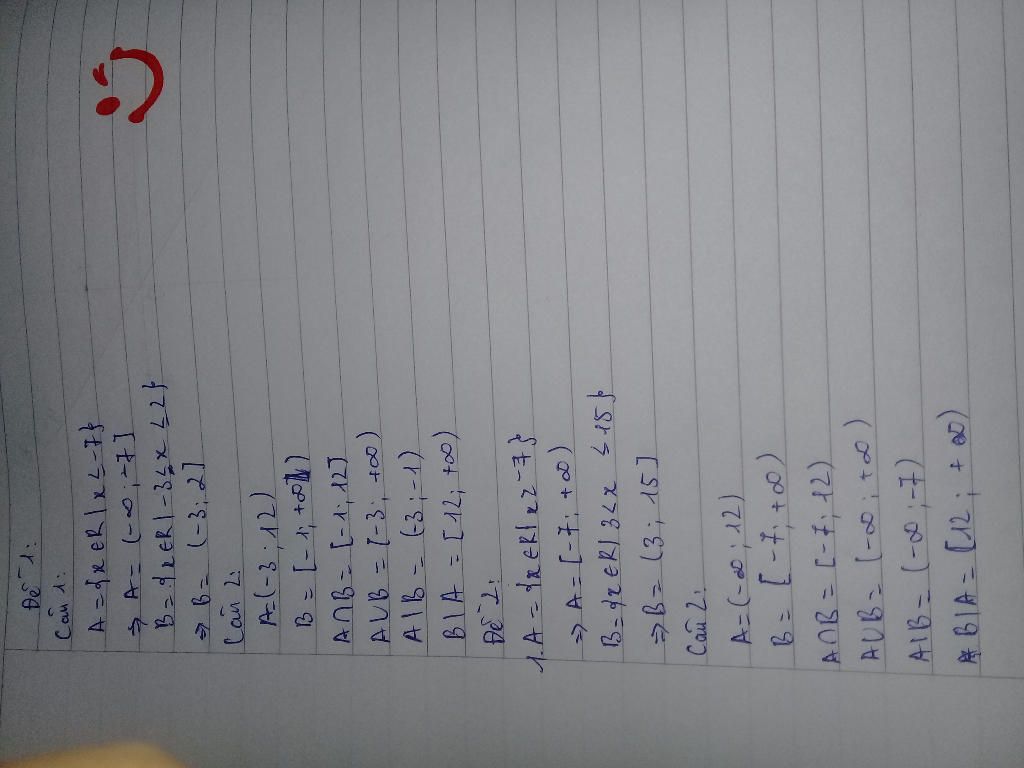 Đề 1:
Câu 1:
A = {x ∈ R | x ≤ -7}
⇒ A = (-∞; -7]
B = {x ∈ R | -3 < x ≤ 2}
⇒ B = (-3; 2]
Câu 2:
A (-3; 12)
B = [-1; +∞)
A∩B = [-1; 12]
A∪B = [-3; +∞)
A | B = (3; -1)
B | A = [12; +∞)
Đề 2:
1. A = {x ∈ R | x ≥ -7}
⇒ A = [-7; +∞)
B = {x ∈ R | 3 < x ≤ 15}
⇒ B = (3; 15]
Câu 2:
A = (-∞; 12)
B = [-7; +∞)
A∩B = [-7; 12)
A∪B = (-∞; +∞)
A | B = (-∞; -7)
B | A = [12; +∞)